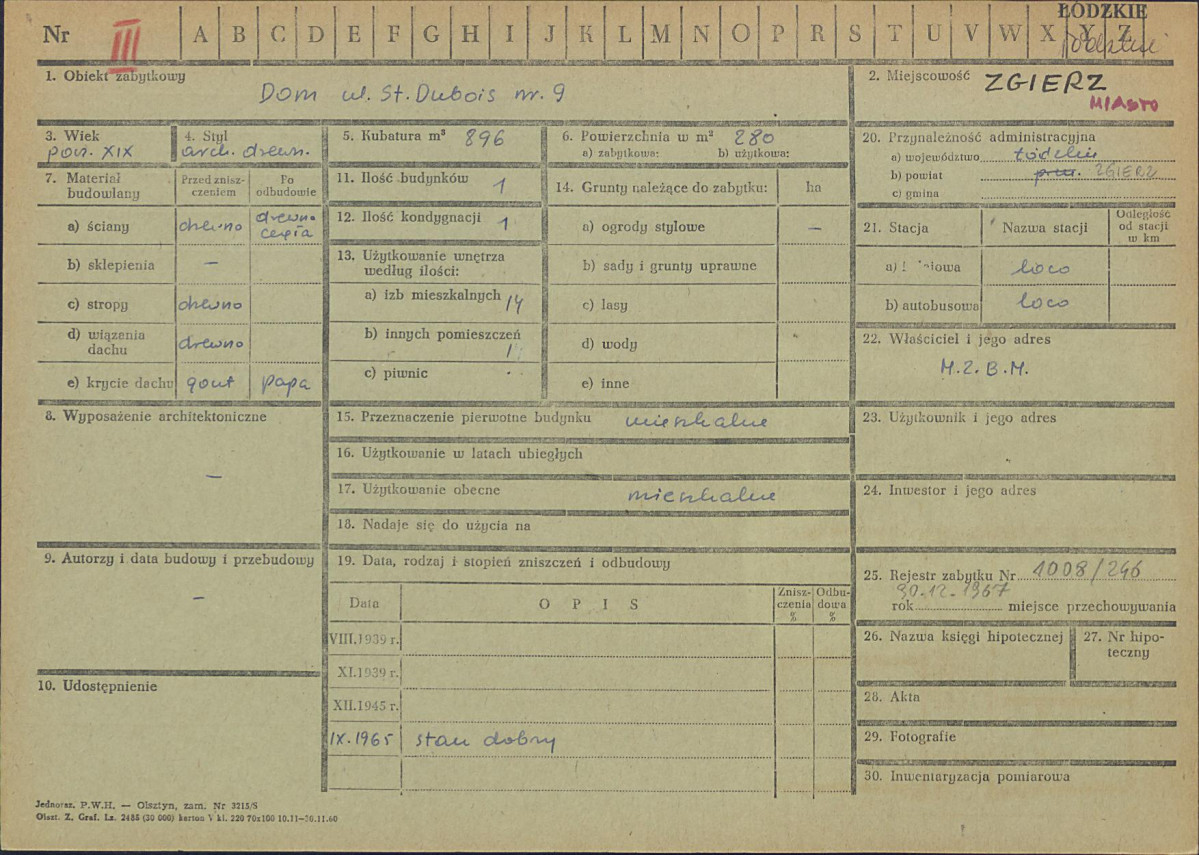 Nr III A B C D E F G H I J K L M N O P R S T U V W X Y Z
ŁÓDZKIE
1. Obiekt zabytkowy
Dom ul. St. Dubois nr. 9
2. Miejscowość ZGIERZ
MIASTO
3. Wiek
poł. XIX
4. Styl
arch. drewn.
5. Kubatura m³ 896
6. Powierzchnia w m² 280
a) zabytkowa: b) użytkowa:
7. Materiał budowlany
Przed zniszczeniem
Po odbudowie
a) ściany drewno drewno cegła
b) sklepienia –
c) stropy drewno
d) wiązenia dachu drewno
e) krycie dachu gont papa
8. Wyposażenie architektoniczne
–
9. Autorzy i data budowy i przebudowy
–
10. Udostępnienie
11. Ilość budynków 1
12. Ilość kondygnacji 1
13. Użytkowanie wnętrza według ilości:
a) izb mieszkalnych 14
b) innych pomieszczeń 1
c) piwnic
14. Grunty należące do zabytku: ha
a) ogrody stylowe –
b) sady i grunty uprawne
c) lasy
d) wody
e) inne
15. Przeznaczenie pierwotne budynku mieszkalne
16. Użytkowanie w latach ubiegłych
17. Użytkowanie obecne mieszkalne
18. Nadaje się do użycia na
19. Data, rodzaj i stopień zniszczeń i odbudowy
Data OPIS Zniszczenia % Odbudowa %
VIII.1939 r.
XI.1939 r.
XII.1945 r.
IX.1965 stan dobry
20. Przynależność administracyjna
a) województwo łódzkie
b) powiat ZGIERZ
c) gmina
21. Stacja Nazwa stacji Odległość od stacji w km
a) loco
b) autobusowa loco
22. Właściciel i jego adres
M.Z.B.M.
23. Użytkownik i jego adres
24. Inwestor i jego adres
25. Rejestr zabytku Nr 1008/246
30.12.1967
rok miejsce przechowywania
26. Nazwa księgi hipotecznej
27. Nr hipoteczny
28. Akta
29. Fotografie
30. Inwentaryzacja pomiarowa
Jednoraz. P.W.H. — Olsztyn, zam. Nr 3215/S
Olszt. Z. Graf. Lz. 2485 (30 000) karton V kl. 220 70x100 10.11—30.11.60